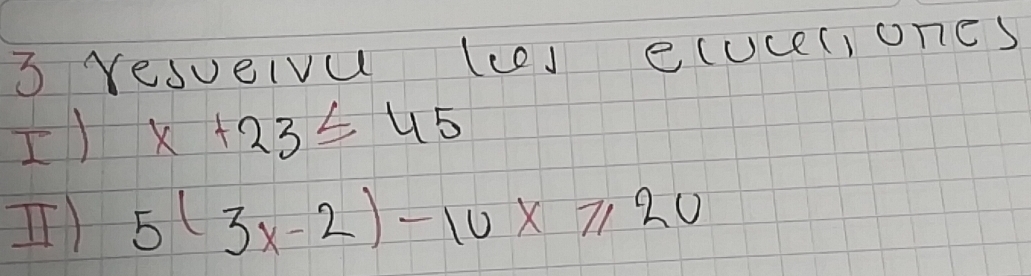 3 resuelva las ecuaciones
I) x + 23 ≤ 45
II) 5(3x - 2) - 10x ≥ 20